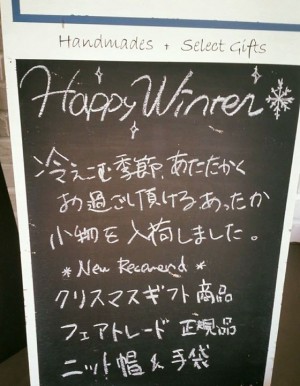 Handmades + Select Gifts
Happy Winter
冷えこむ季節、あたたかく
お過ごし頂ける、あったか
小物を入荷しました。
* New Recomend *
クリスマスギフト商品
フェアトレード 正規品
ニット帽 & 手袋